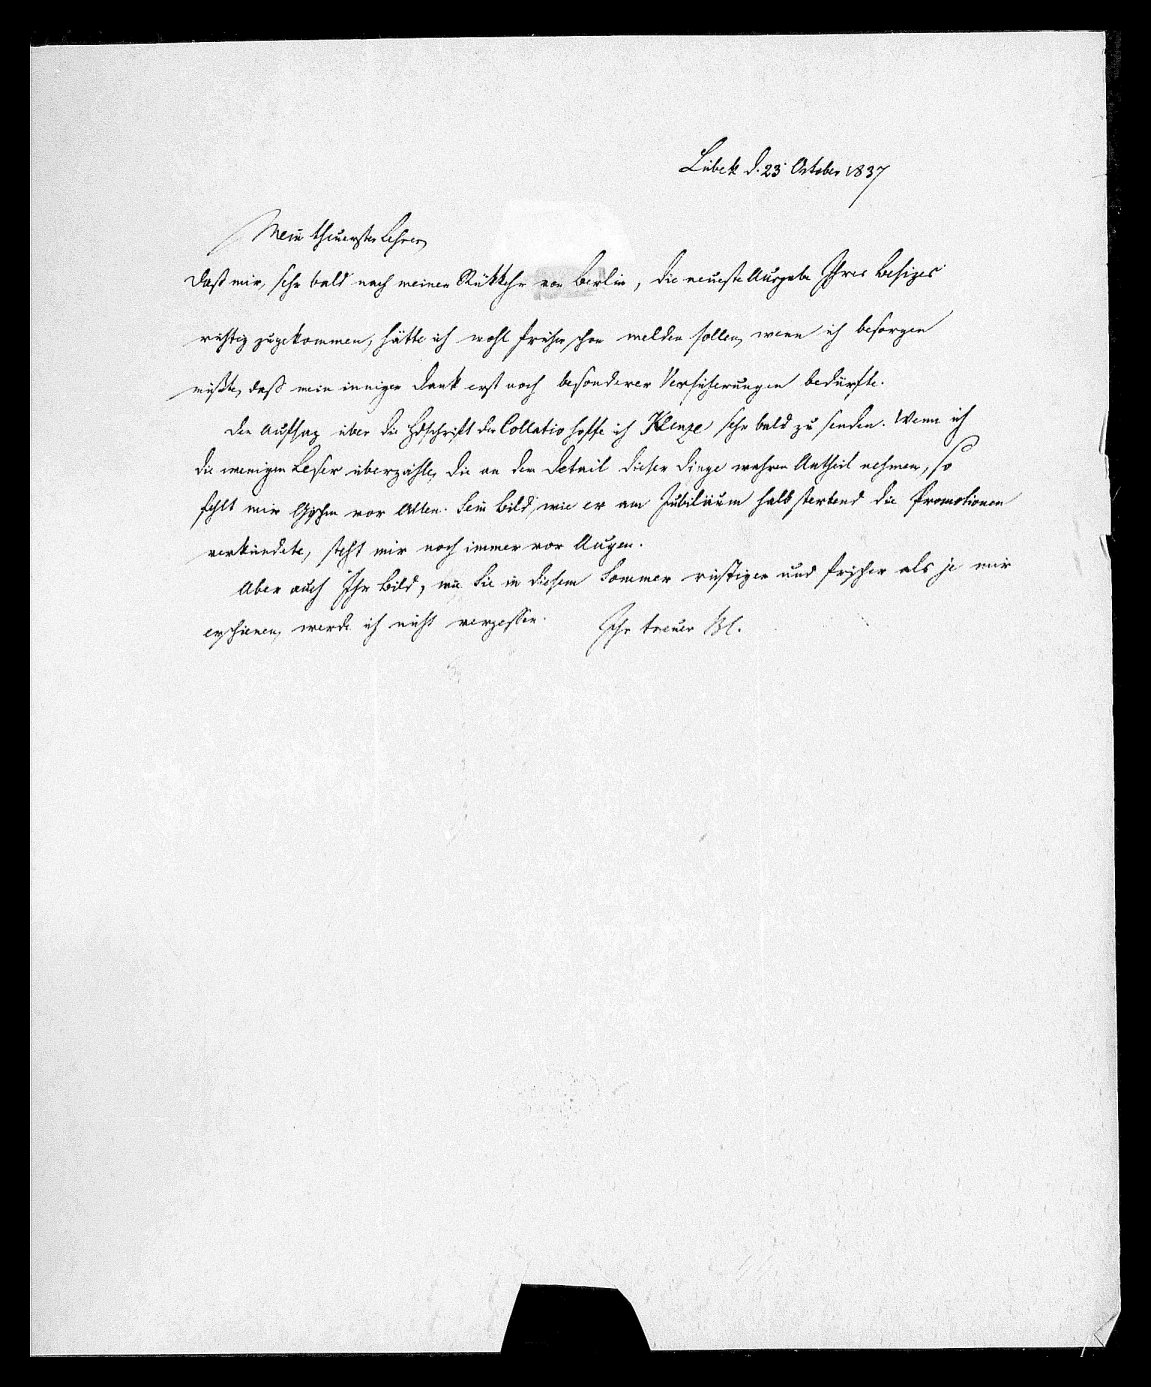 Lübek d. 23 October 1837
Mein theuerster Lehrer,
Daß mir, sehr bald nach meiner Rükkehr von Berlin, die neueste Ausgabe Ihres Besizes
richtig zugekommen, hätte ich wohl früher schon melden sollen, wenn ich besorgen
müßte, daß mein inniger Dank erst noch besonderer Versicherungen bedürfte.
Den Aufsaz über die Hdschrift der Collatio hoffe ich Klenze sehr bald zu senden. Wenn ich
die wenigen Leser überzähle, die an dem Detail dieser Dinge wahren Antheil nehmen, so
fehlt mir vor Allen. Sein Bild, wie er am Jubiläum halb sterbend die Promotionen
verkündete, steht mir noch immer vor Augen.
Aber auch Ihr Bild, wie Sie in diesem Sommer rüstiger und frischer als je mir
erschienen, werde ich nicht vergessen. Ihr treuer Bl.